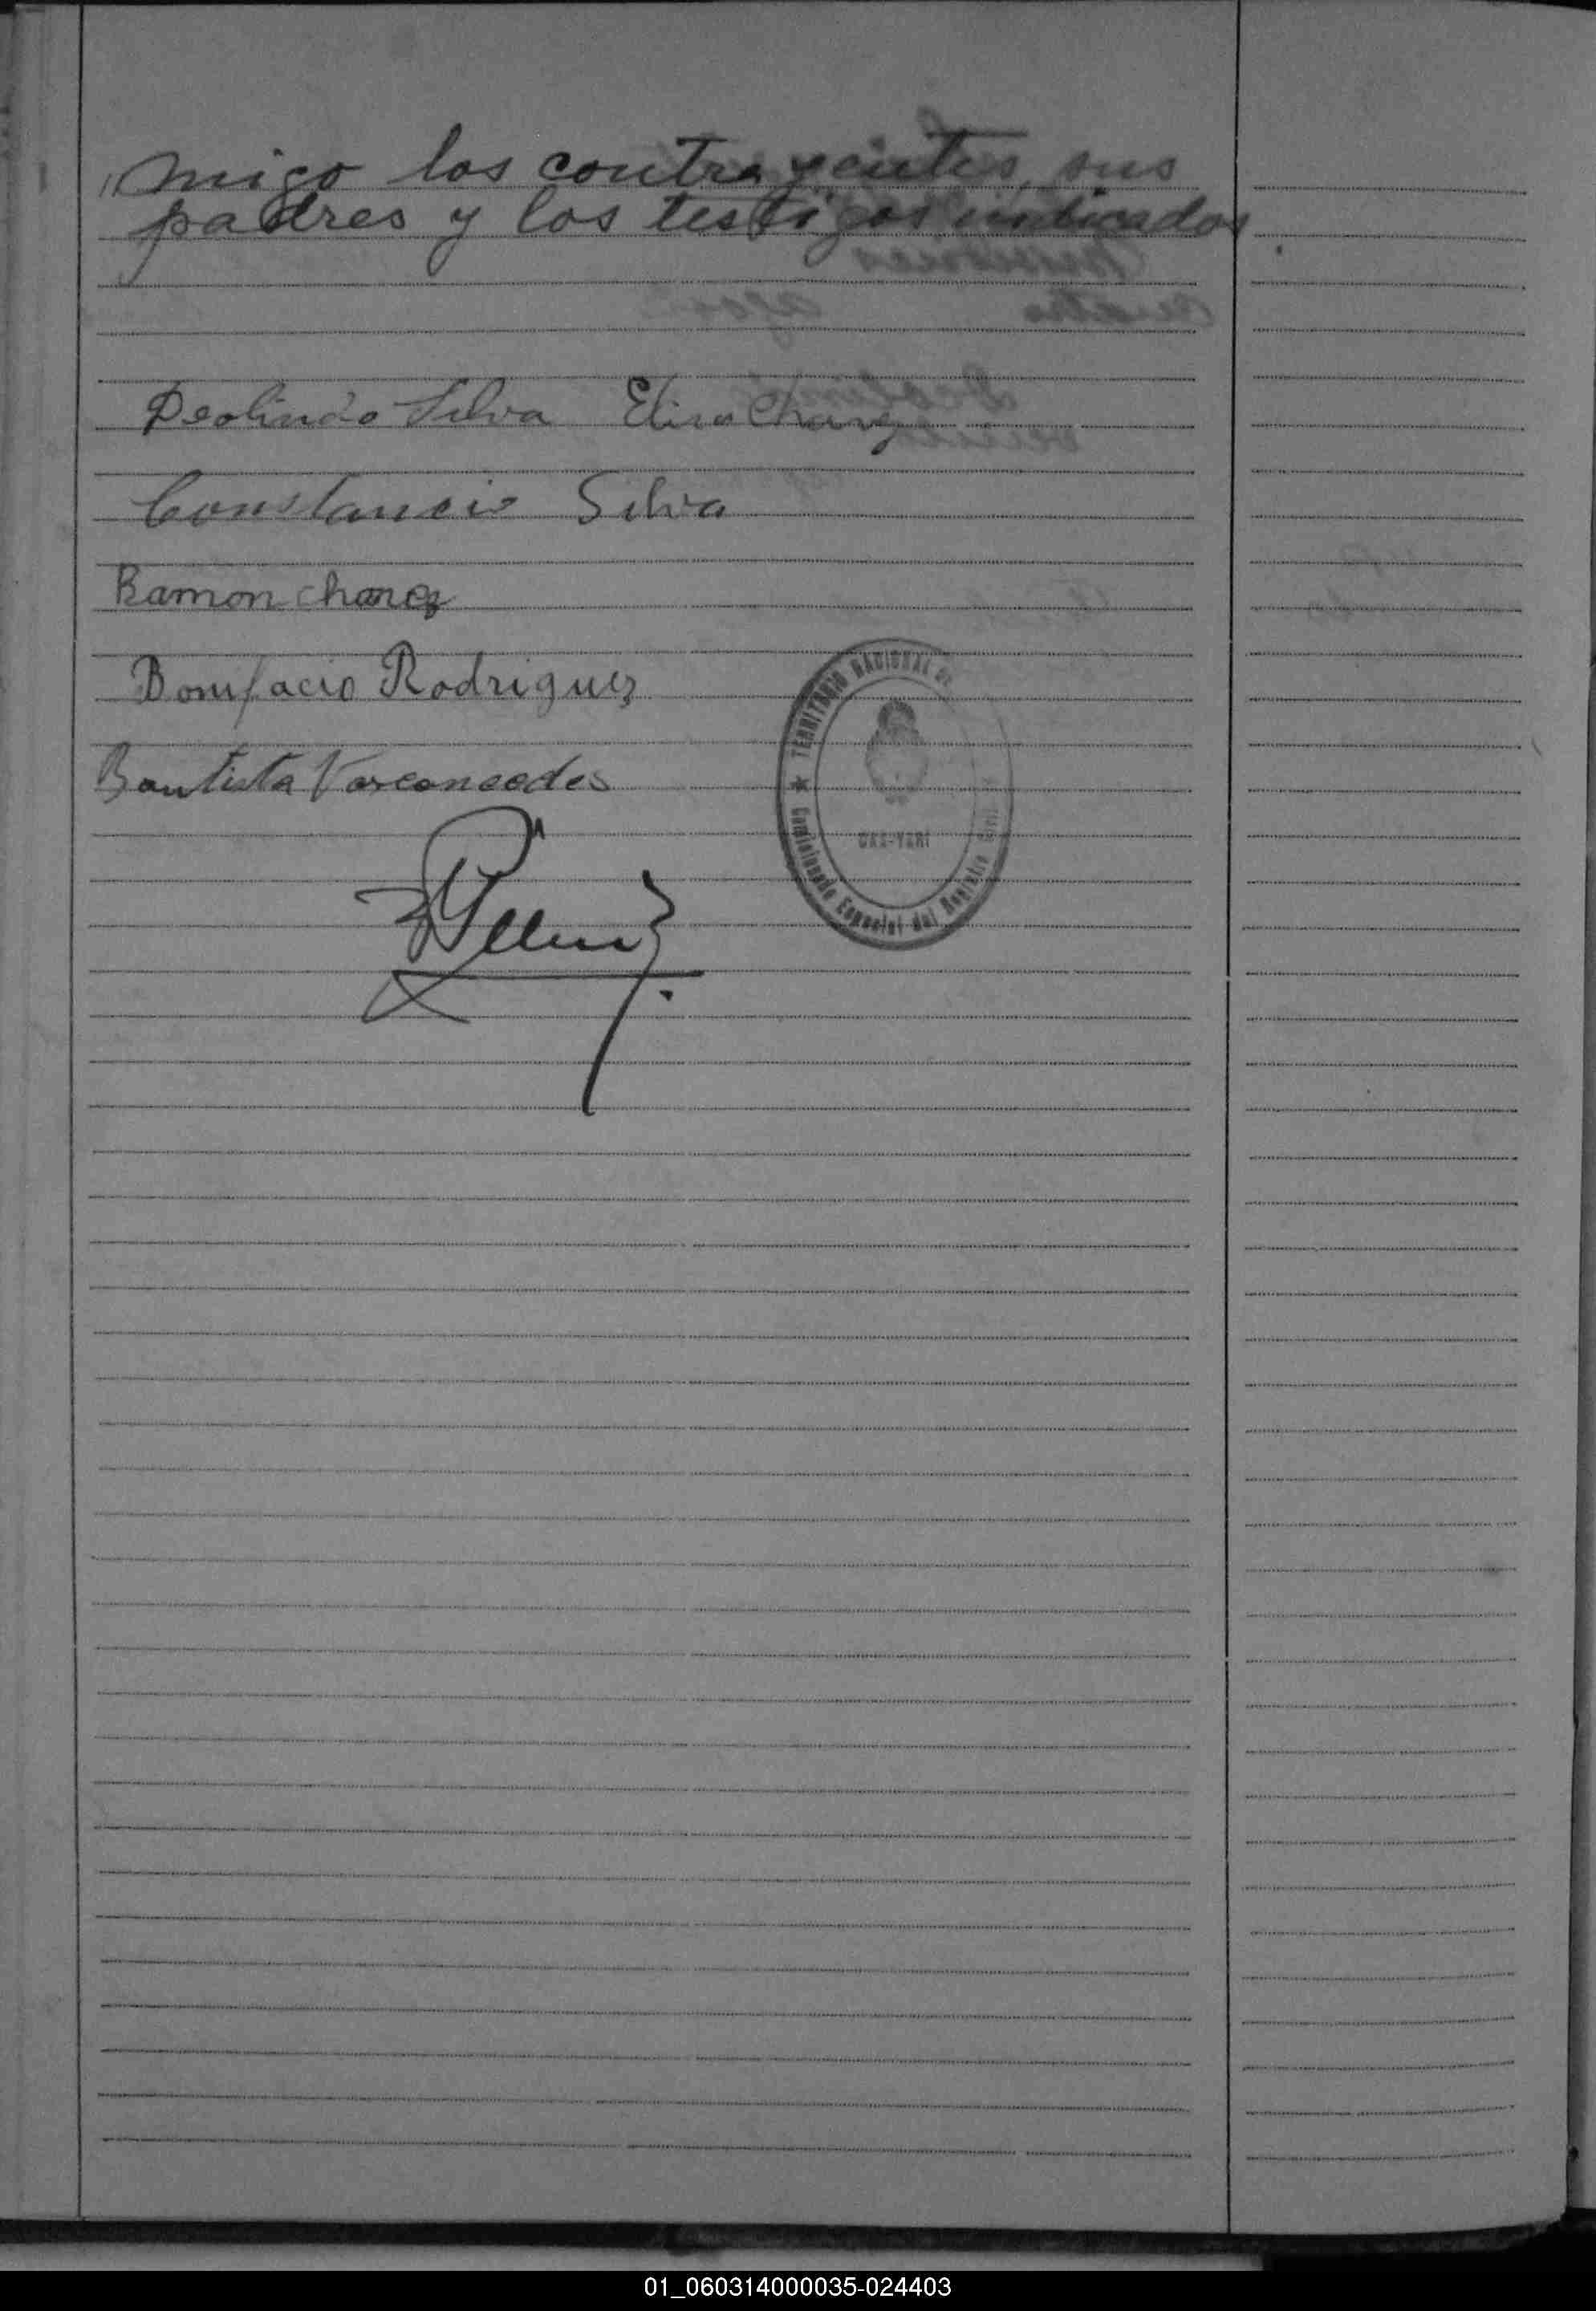 migo los contrayentes, sus
padres y los testigos indicados
Deolindo Silva Elisa Chavez
Constancio Silva
Ramon chavez
Bonifacio Rodriguez
Bautista Vasconcedes
★ TERRITORIO NACIONAL DE
CAA-YARÍ
Comisionado Especial del Registro Civil
01_060314000035-024403